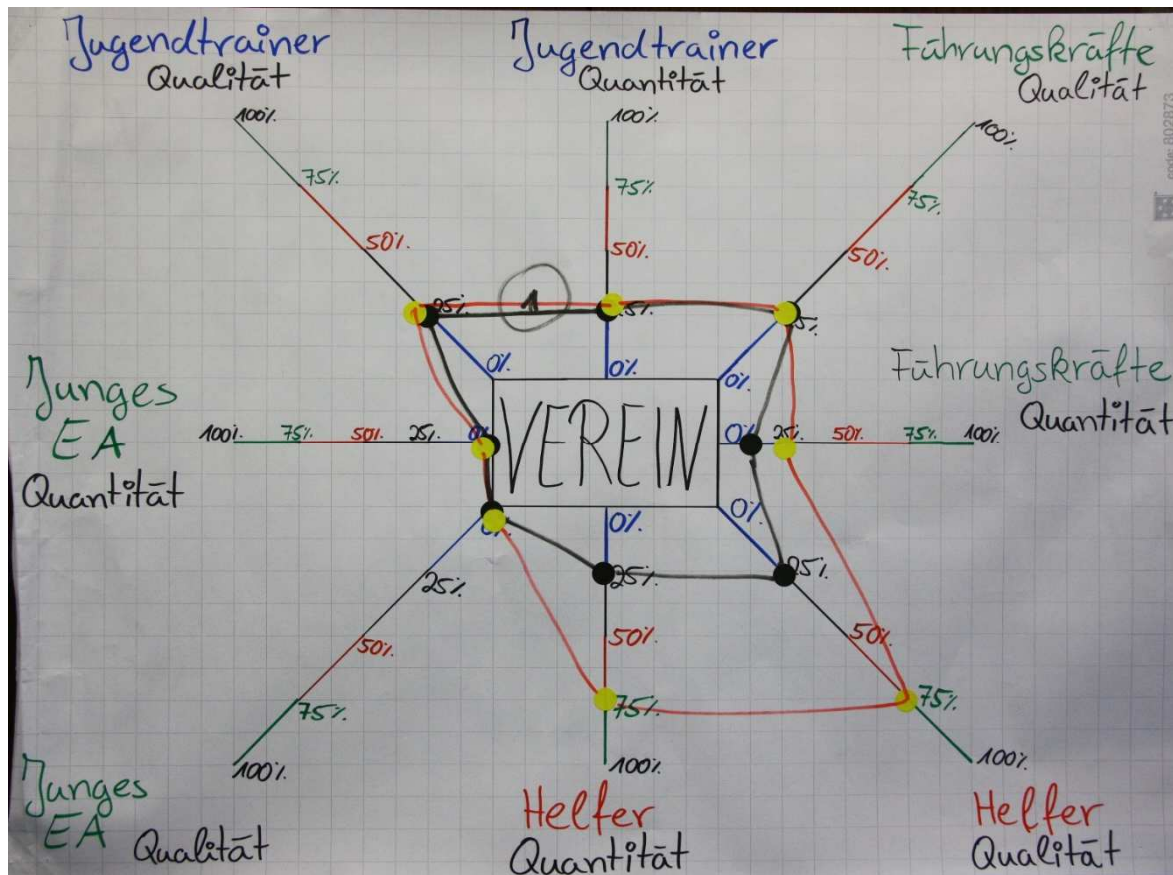 Jugendtrainer
Qualität
Jugendtrainer
Quantität
Führungskräfte
Qualität
100%
100%
100%
75%
75%
75%
50%
50%
50%
25%
1
0%
0%
0%
Junges
EA
Quantität
100%
75%
50%
25%
VEREIN
0%
25%
50%
75%
100%
Führungskräfte
Quantität
0%
0%
0%
25%
25%
25%
50%
50%
50%
75%
75%
75%
100%
100%
100%
Junges
EA
Qualität
Helfer
Quantität
Helfer
Qualität